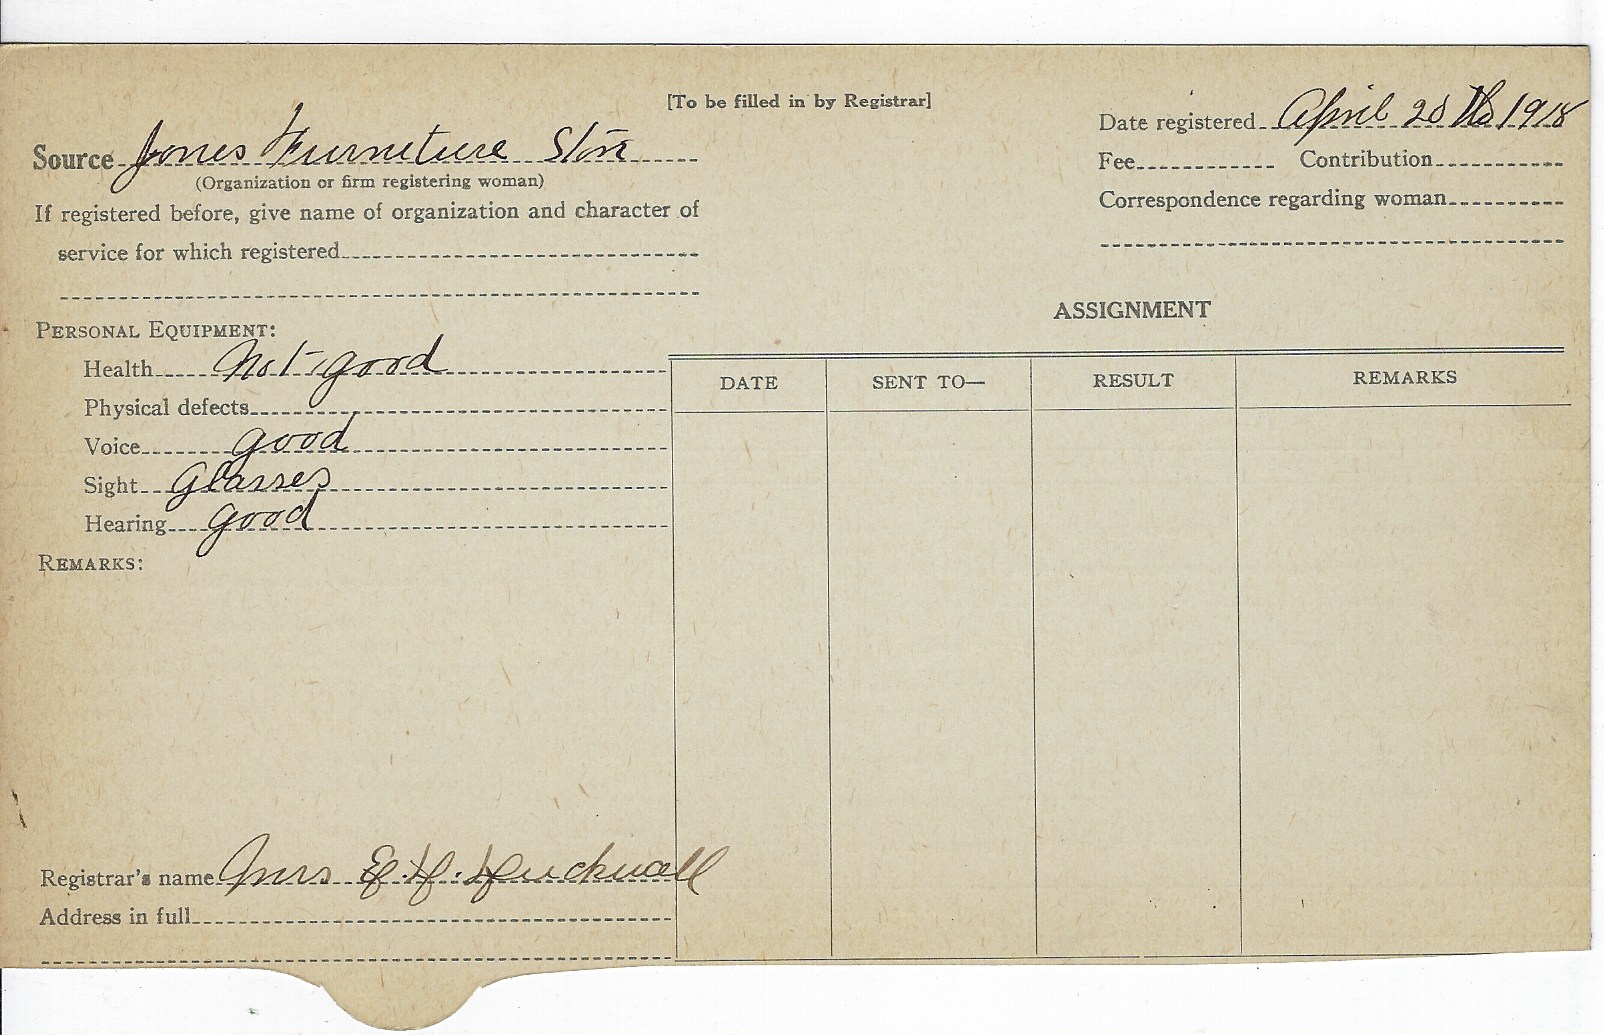 [To be filled in by Registrar]
Date registered April 20 th 1918
Source Jones Furneture Store
(Organization or firm registering woman)
Fee Contribution
If registered before, give name of organization and character of
Correspondence regarding woman
service for which registered
PERSONAL EQUIPMENT:
ASSIGNMENT
Health Not good
DATE SENT TO— RESULT REMARKS
Physical defects
Voice good
Sight Glasses
Hearing good
REMARKS:
Registrar's name Mrs E. H. Huckwell
Address in full